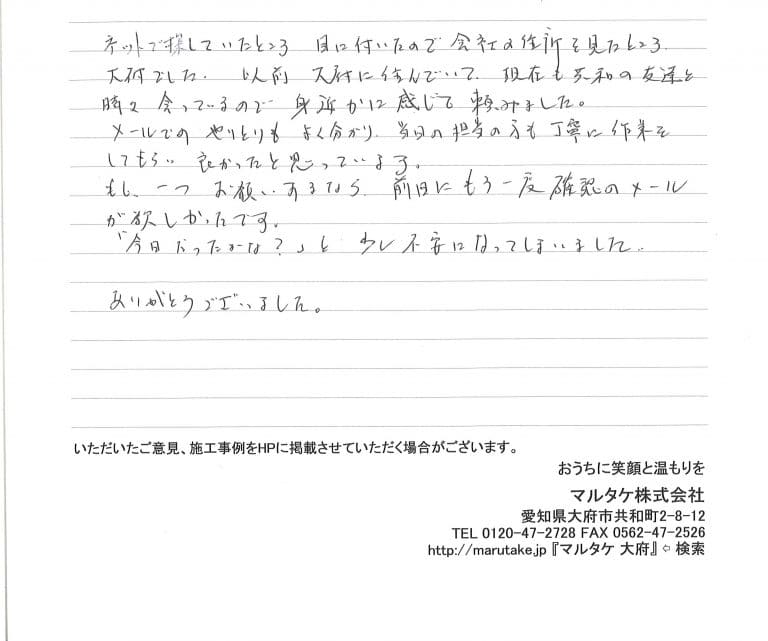 ネットで探していたところ 目に付いたので 会社の住所を見たところ
大府でした。 以前 大府に住んでいて 現在も共和の友達と
時々会っているので 身近かに感じて頼みました。
メールでのやりとりも よく分かり、当日の担当の方も丁寧に作業を
してもらい 良かったと思っています。
もし、一つ お願いするなら 前日にもう一度確認のメール
が欲しかったです。
「今日だったかな?」と 少し不安になってしまいました。
ありがとうございました。
いただいたご意見、施工事例をHPに掲載させていただく場合がございます。
おうちに笑顔と温もりを
マルタケ株式会社
愛知県大府市共和町2-8-12
TEL 0120-47-2728 FAX 0562-47-2526
http://marutake.jp『マルタケ 大府』⇦ 検索